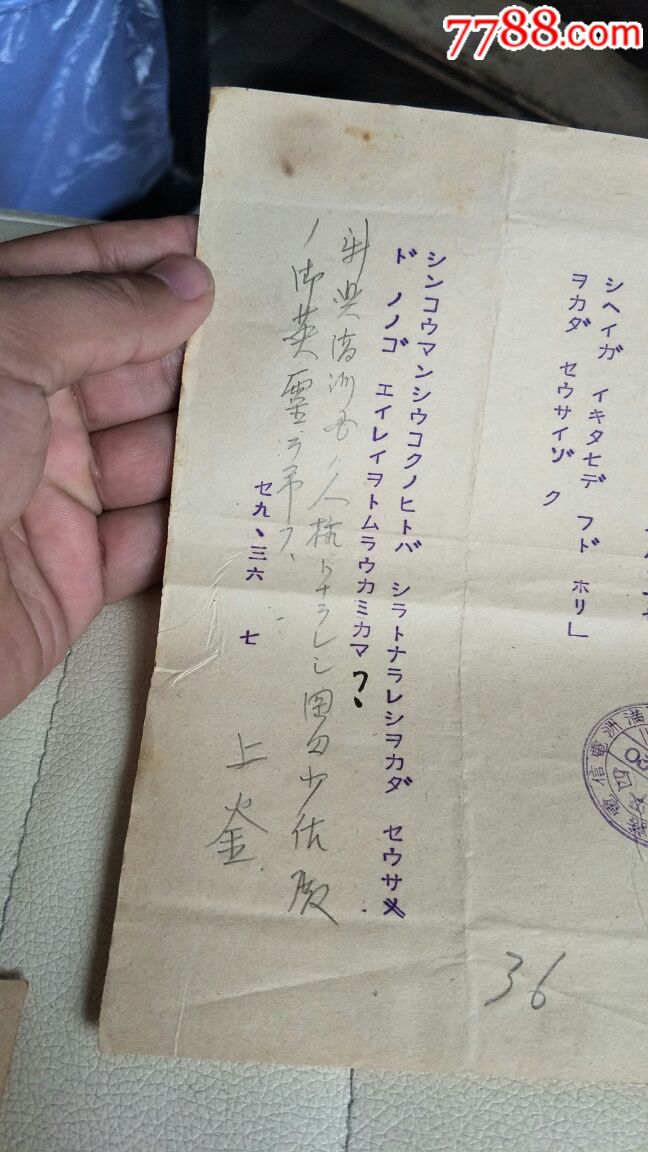 7788.com
シヘイガ イキタセデ フド ホリ」
ヲカダ セウサイゾ ク
シンコウマンシウコクノヒトバ シラトナラレシヲカダ セウサ
ド ノノゴ エイレイヲトムラウカミカマ ?
新興満洲国ノ人柱トナラレシ岡田少佐殿
ノ御英霊ヲ弔フ、
セ九、三六 七
上釜
36